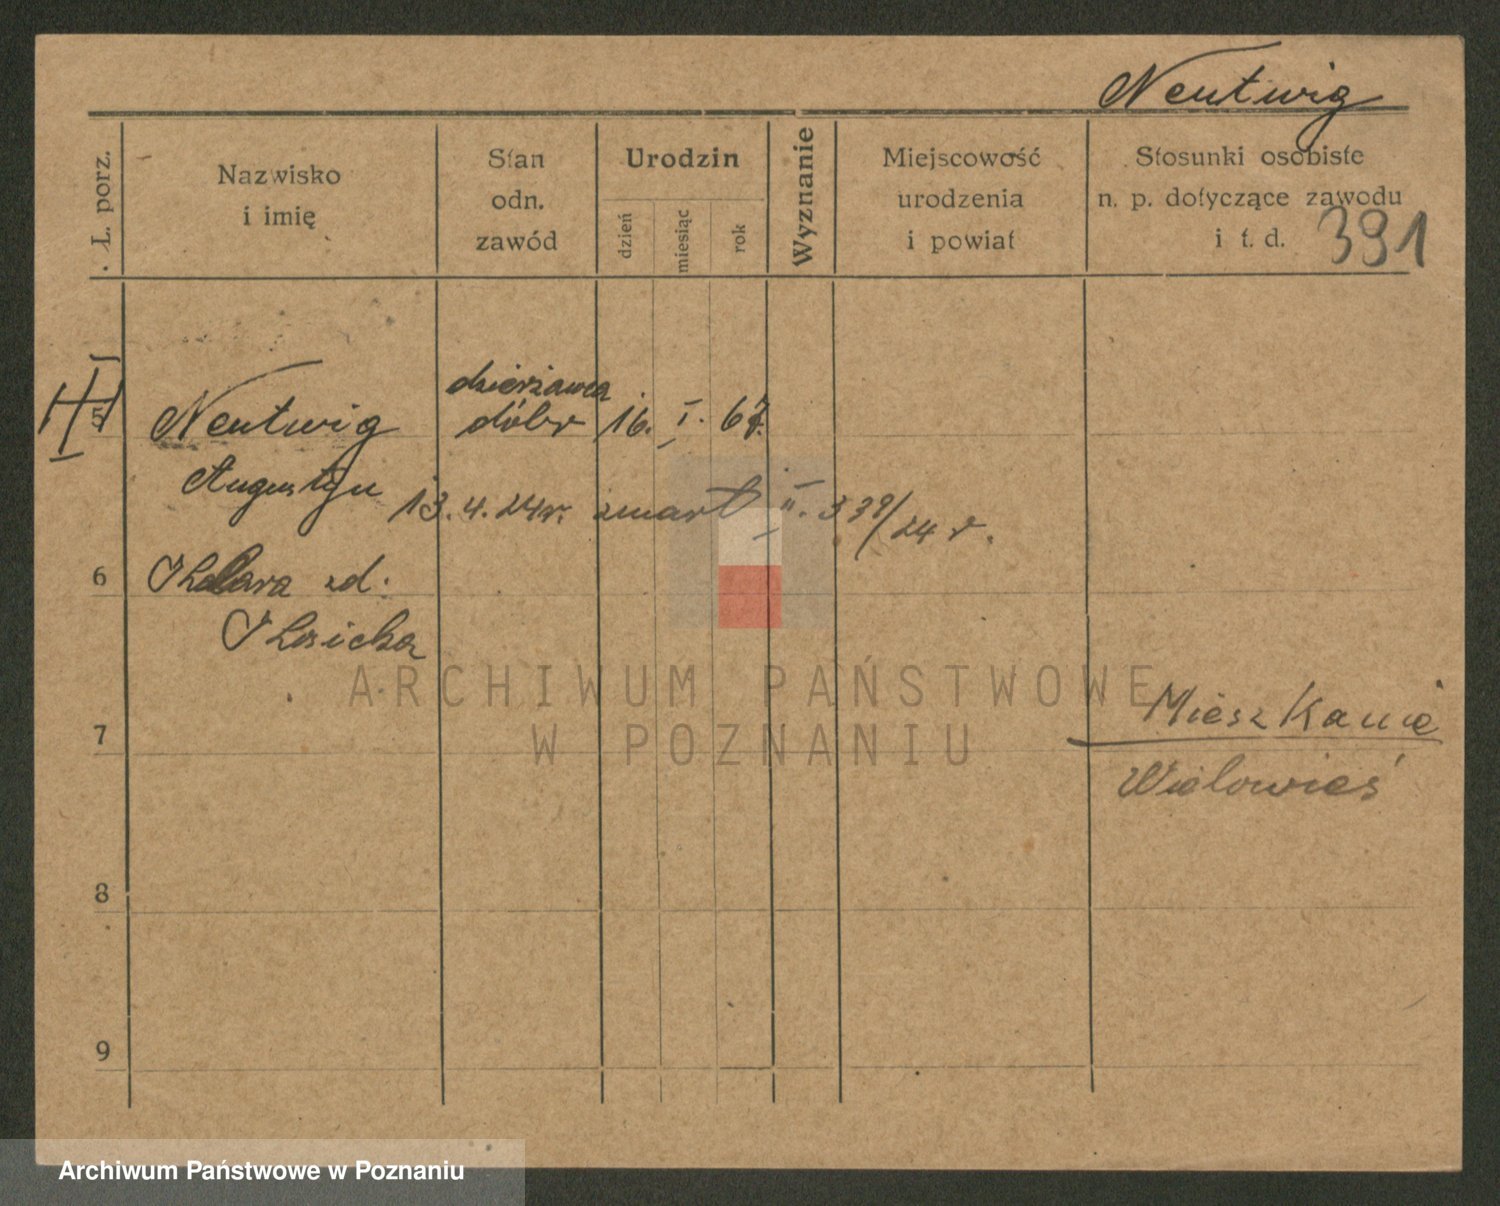 Neutwig
L. porz.
Nazwisko
i imię
Stan
odn.
zawód
Urodzin
dzień
miesiąc
rok
Wyznanie
Miejscowość
urodzenia
i powiat
Stosunki osobiste
n. p. dotyczące zawodu
i t. d.
391
5
Neutwig
dzierżawca
dóbr
16. I. 67.
Augustyn
13.4.24r. zmarł II. 339/24 r.
6
Klara zd:
7
Mieszkanie
Wielowieś
8
9
ARCHIWUM PAŃSTWOWE
W POZNANIU
Archiwum Państwowe w Poznaniu